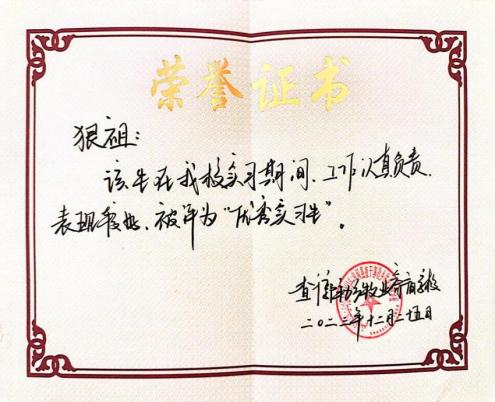 荣誉证书
狼祖：
该生在我校实习期间，工作认真负责，
表现较好，被评为“优秀实习生”。
牧业寄宿学校
二〇二三年十二月二十五日